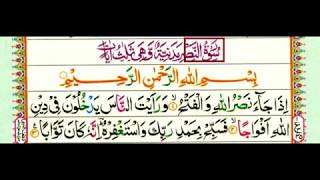 سُوْرَةُ النَّصْرِ مَدَنِيَّةٌ وَّهِيَ ثَلٰثُ اٰيَاتٍ
بِسْمِ اللّٰهِ الرَّحْمٰنِ الرَّحِيْمِ
اِذَا جَآءَ نَصْرُ اللّٰهِ وَالْفَتْحُ ۙ﴿۱﴾ وَرَاَيْتَ النَّاسَ يَدْخُلُوْنَ فِيْ دِيْنِ
اللّٰهِ اَفْوَاجًا ۙ﴿۲﴾ فَسَبِّحْ بِحَمْدِ رَبِّكَ وَاسْتَغْفِرْهُ ؕ اِنَّهٗ كَانَ تَوَّابًا ﴿۳﴾